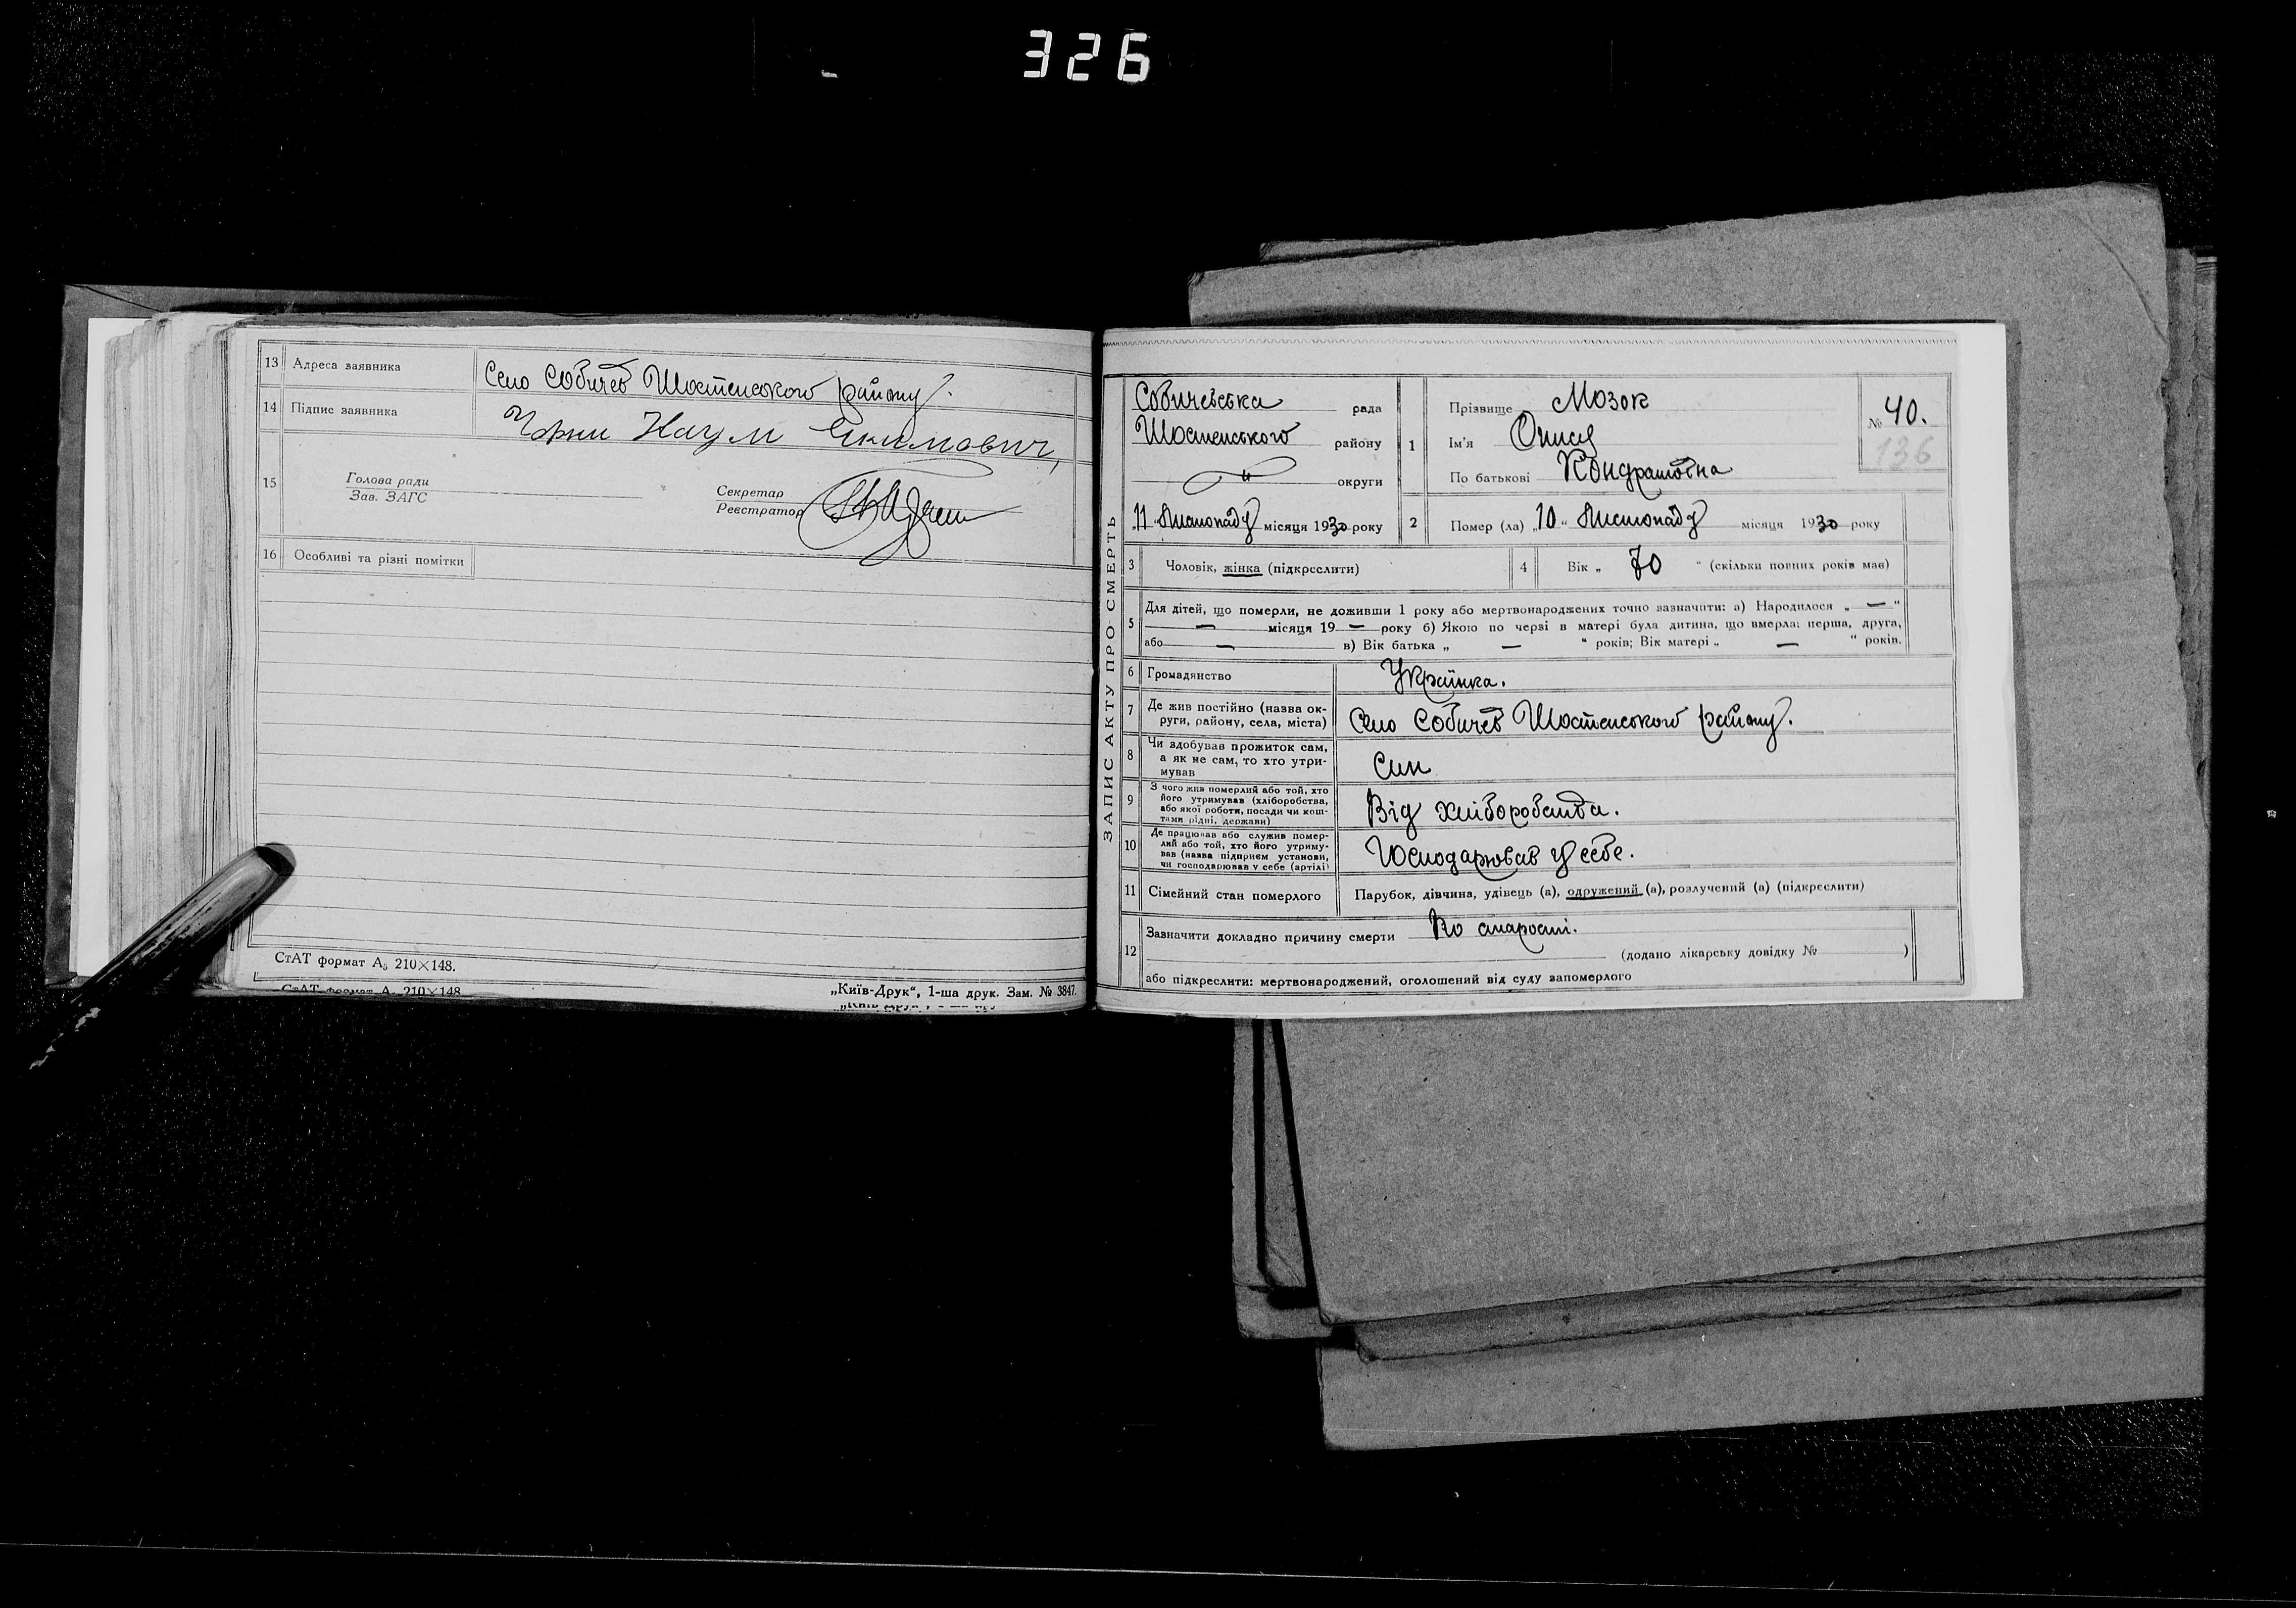 326
13 Адреса заявника Село Собичев Шостенського району.
14 Підпис заявника Наум Екимович,
15 Голова ради
Зав. ЗАГС
Секретар
Реєстратор
16 Особливі та різні помітки
СтАТ формат А5 210×148.
СтАТ формат А5 210×148
„Київ-Друк“, 1-ша друк. Зам. № 3847.
ЗАПИС АКТУ ПРО СМЕРТЬ
Собичевська рада
Шостенського району
" округи
„11“ Листопаду місяця 1930 року
1 Прізвище Мозок
Ім'я Опися
По батькові Кондратовна
№ 40.
136
2 Помер (ла) „10“ Листопаду місяця 1930 року
3 Чоловік, жінка (підкреслити)
4 Вік „ 70 “ (скільки повних років має)
5 Для дітей, що померли, не доживши 1 року або мертвонароджених точно зазначити: а) Народилося „ — “
— місяця 19 — року б) Якою по черзі в матері була дитина, що вмерла: перша, друга,
або — в) Вік батька „ — “ років; Вік матері „ — “ років.
6 Громадянство Українка.
7 Де жив постійно (назва ок-
руги, району, села, міста) Село Собичев Шостенського району.
8 Чи здобував прожиток сам,
а як не сам, то хто утри-
мував Син
9 З чого жив померлий або той, хто
його утримував (хліборобства,
або якої роботи, посади чи кош-
тами рідні, держави) Від хліборобства.
10 Де працював або служив помер-
лий або той, хто його утриму-
вав (назва підприєм установи,
чи господарював у себе (артілі) Господарював у себе.
11 Сімейний стан померлого Парубок, дівчина, удівець (а), одружений (а), розлучений (а) (підкреслити)
12 Зазначити докладно причину смерти По старості.
(додано лікарську довідку № )
або підкреслити: мертвонароджений, оголошений від суду запомерлого